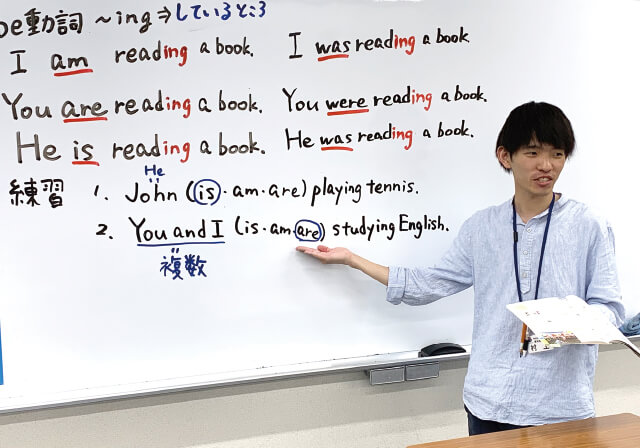 be動詞 ~ing⇒しているところ
I am reading a book. I was reading a book.
You are reading a book. You were reading a book.
He is reading a book. He was reading a book.
He
練習 1. John (is・am・are) playing tennis.
2. You and I (is・am・are) studying English.
複数